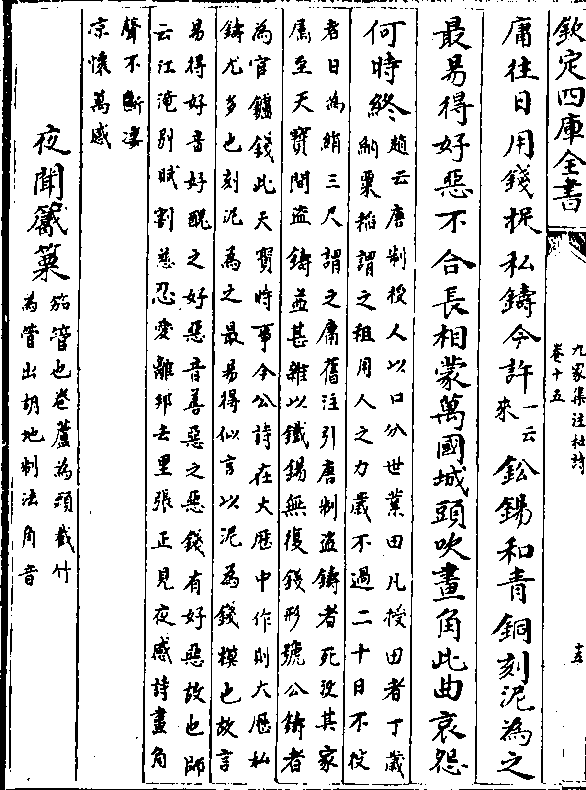 欽定四庫全書
九家集注杜詩
卷十五
庸往日用錢捉私鑄今許一云來鈆錫和青銅刻泥為之
最易得好惡不合長相蒙萬國城頭吹畫角此曲哀怨
何時終趙云唐制授人以口分世業田凡授田者丁歲
納粟稻謂之租用人之力歲不過二十日不役
者日為絹三尺謂之庸舊注引唐制盗鑄者死没其家
屬至天寶間盗鑄益甚雜以鐵錫無復錢形號公鑄者
為官鑪錢此天寶時事今公詩在大歷中作則大歷私
鑄尤多也刻泥為之最易得似言以泥為錢模也故言
易得好音好醜之好惡音善惡之惡錢有好惡故也師
云江淹别賦割慈忍愛離邦去里張正見夜感詩畫角
聲不斷淒
凉懷萬感
夜聞觱篥
笳管也卷蘆為頭截竹
為管出胡地制法角音